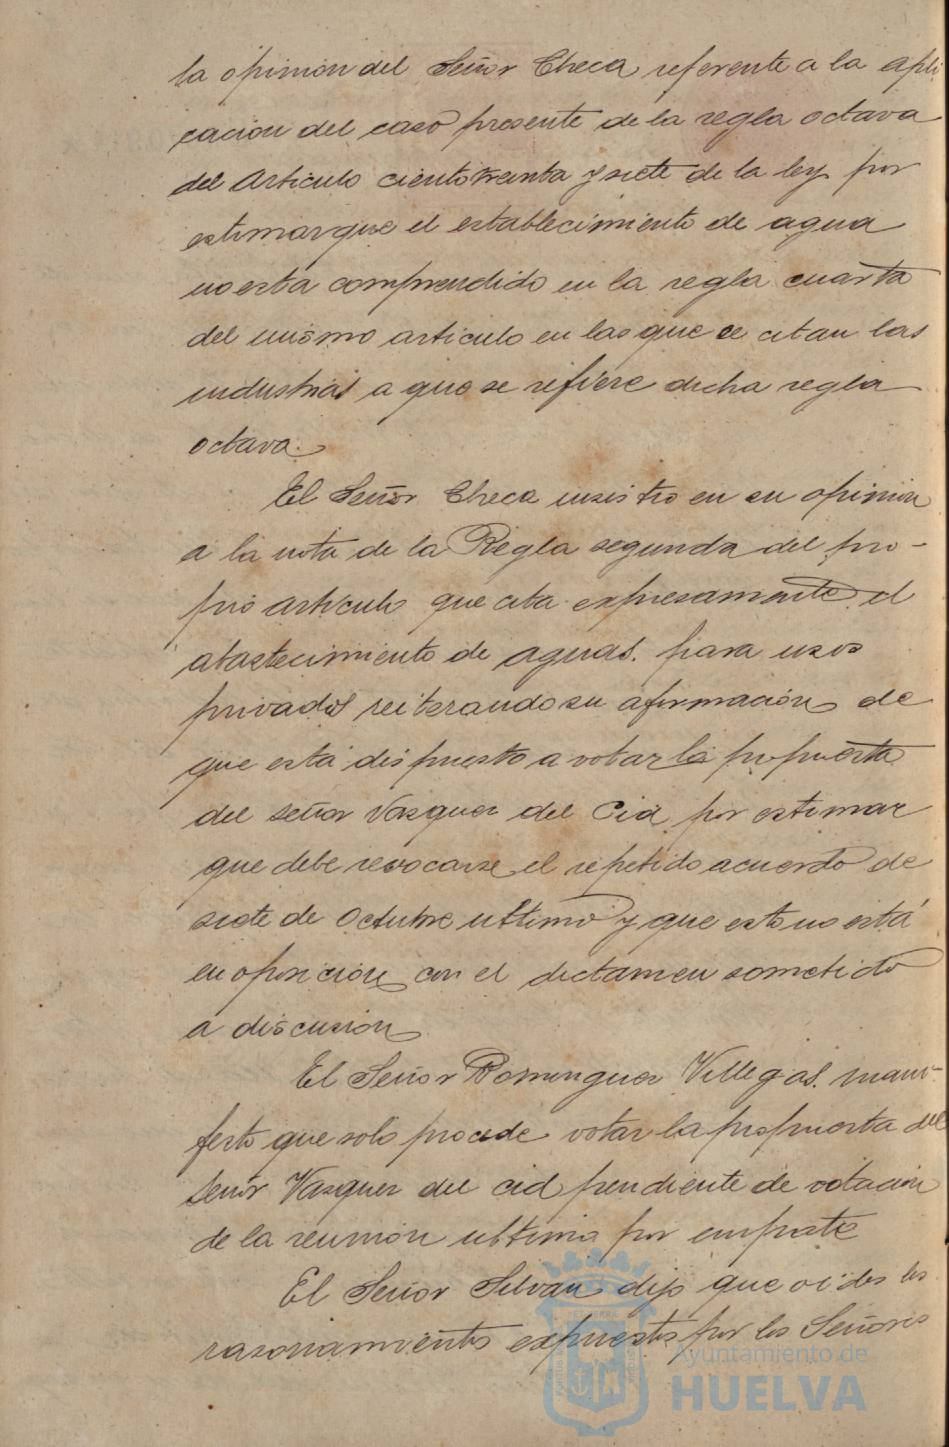 la opinion del Señor Checa referente a la apli
cacion del caso presente de la regla octava
del Articulo ciento treinta y siete de la ley por
estimar que el establecimiento de agua
no esta comprendido en la regla cuarta
del mismo articulo en las que se citan las
industrias a que se refiere dicha regla
octava.
El Señor Checa insistio en su opinion
a la nota de la Regla segunda del pro-
pio articulo que cita expresamente el
abastecimiento de aguas. para usos
privados reiterando su afirmación de
que está dispuesto a votar la propuesta
del señor Vazquez del Cid por estimar
que debe revocarse el repetido acuerdo de
siete de Octubre ultimo y que esto no está
en oposición con el dictamen sometido
a discusion
El Señor Dominguez Villegas. mani-
festo que solo procede votar la propuesta del
Señor Vazquez del cid pendiente de votacion
de la reunion ultima por empate
El Señor Silvan dijo que oïdos los
razonamientos expuestos por los Señores
Ayuntamiento de
HUELVA